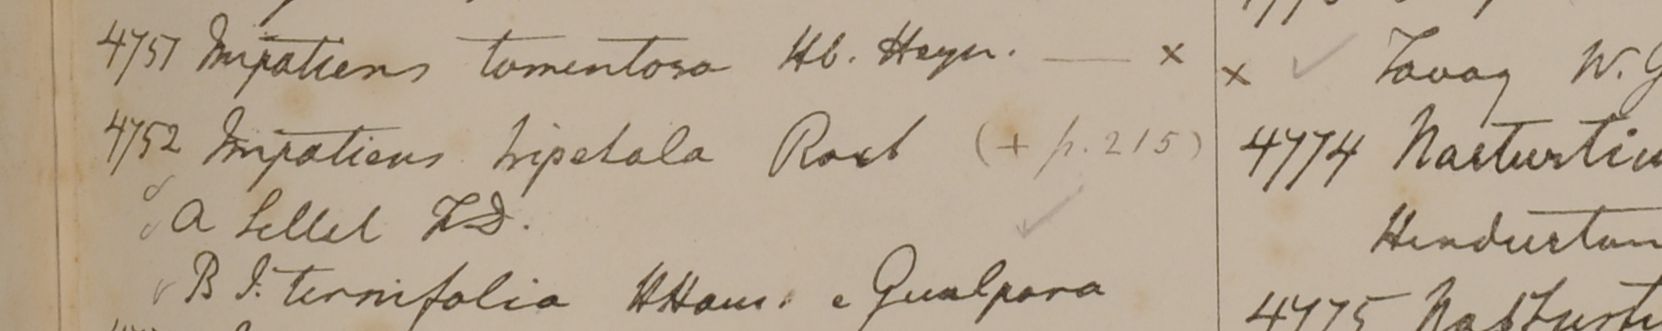 4751 Impatiens tomentosa Hb. Heyn. — ×
4752 Impatiens tripetala Roxb (+ p. 215)
A Sillet F.D.
B I. ternifolia HHam. e Gualpara
× ✓ Tavoy W. G
4774 Nasturtiu
Hindustan
4775 Nasturti